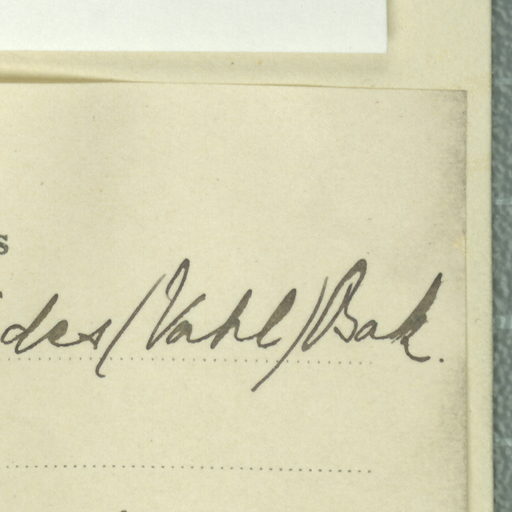 s
ides (Vahl) Bak.